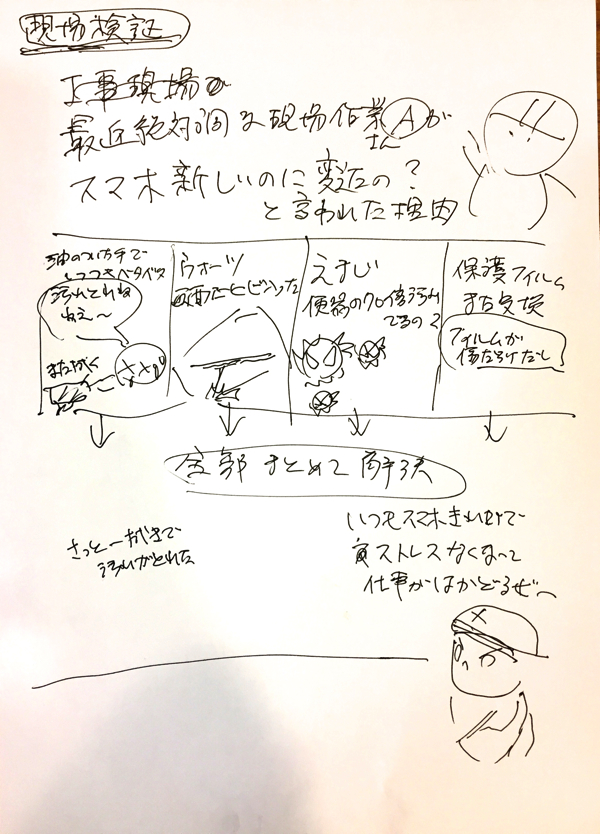 現場検証
工事現場で
最近絶対調な現場作業Aが
さん
スマホ新しいのに変えたの?
と言われた理由
油のついた手で
ベタベタ
汚れとれね
ねぇ〜
また拭く
うぉーッ
画面にヒビ入った
えまじ
便器の
てるの?
保護フィルム
また交換
フィルムが
傷だらけだし!
全部まとめて解決
さっと一拭きで
汚れがとれた
いつもスマホきれいで
ストレスなくなって
仕事がはかどるぜ〜